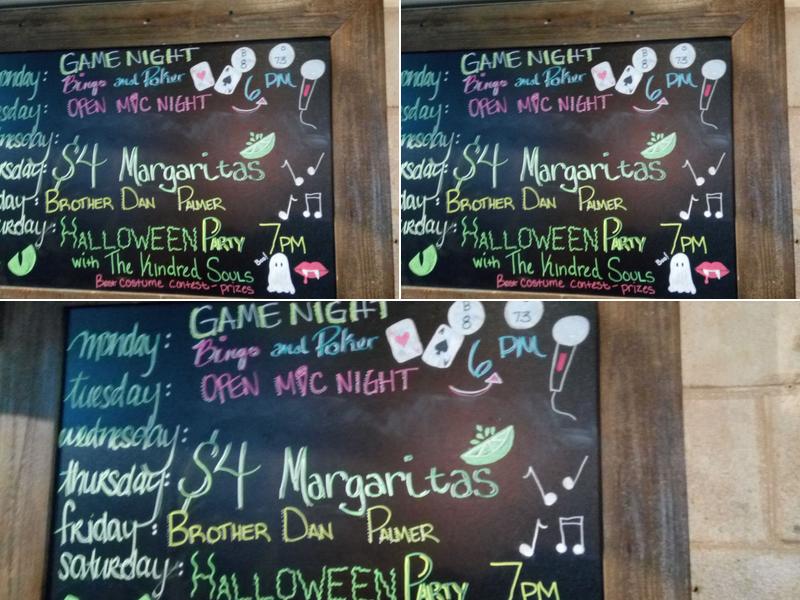 GAME NIGHT
B 8
O 73
onday: Bingo and Poker 6 PM
esday: OPEN MIC NIGHT
nesday:
rsday: $4 Margaritas
day: BROTHER DAN PALMER
urday: HALLOWEEN PARTY 7PM
with The Kindred Souls
Boo!
Best costume contest - prizes
GAME NIGHT
B 8
O 73
onday: Bingo and Poker 6 PM
esday: OPEN MIC NIGHT
nesday:
rsday: $4 Margaritas
day: BROTHER DAN PALMER
urday: HALLOWEEN PARTY 7PM
with The Kindred Souls
Boo!
Best costume contest - prizes
GAME NIGHT
B 8
73
monday: Bingo and Poker 6 PM
tuesday: OPEN MIC NIGHT
wednesday:
thursday: $4 Margaritas
friday: BROTHER DAN PALMER
saturday: HALLOWEEN PARTY 7PM